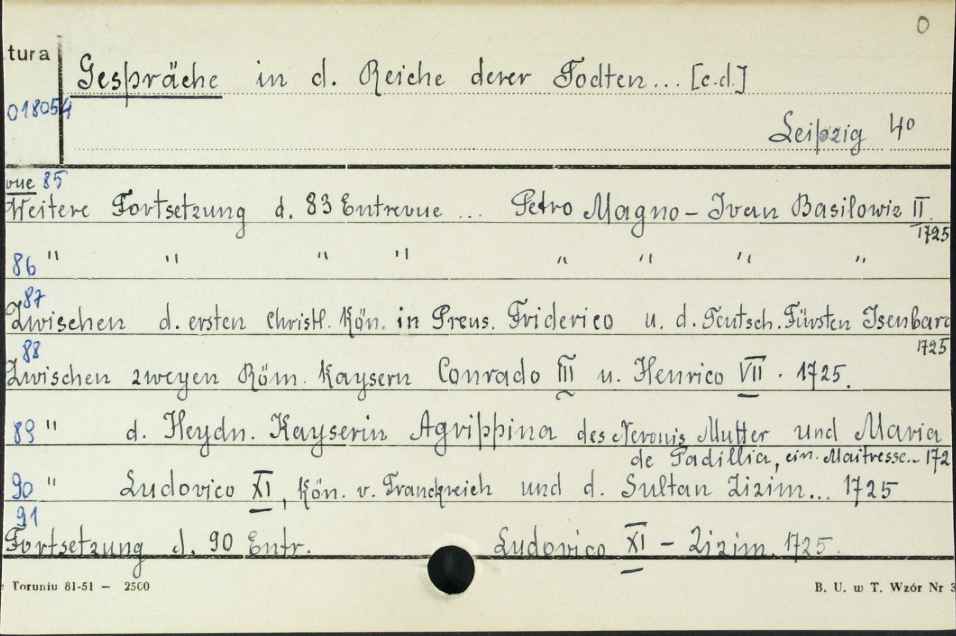 0
tura
Gespräche in d. Reiche derer Todten... [c.d.]
018054
Leipzig 4º
vue 85
Weitere Fortsetzung d. 83 Entrevue ... Petro Magno - Ivan Basilowiz II.
1725
86 " " " " " " " "
87
Zwischen d. ersten christl. Kön. in Preus. Friderico u. d. Teutsch. Fürsten Isenbard
1725
88
Zwischen zweyen Röm. Kaysern Conrado III u. Henrico VII. 1725.
89 " d. Heydn. Kayserin Agrippina des Neronis Mutter und Maria
de Padillia, ein. Maitresse.. 172
90 " Ludovico XI, Kön. v. Franckreich und d. Sultan Zizim... 1725
91
Fortsetzung d. 90 Entr. Ludovico XI - Zizim. 1725.
Toruniu 81-51 - 2500
B. U. w T. Wzór Nr 3